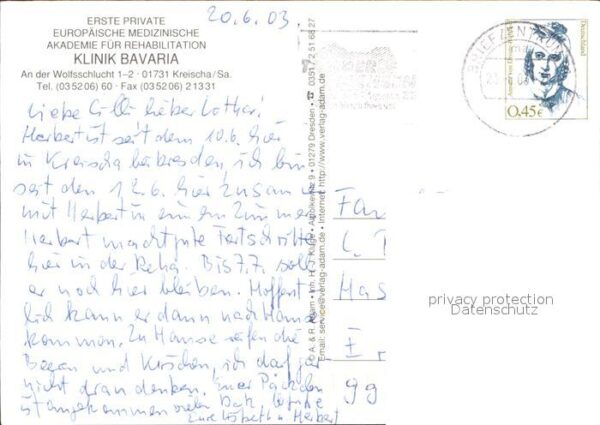 20.6.03
ERSTE PRIVATE
EUROPÄISCHE MEDIZINISCHE
AKADEMIE FÜR REHABILITATION
KLINIK BAVARIA
An der Wolfsschlucht 1–2 · 01731 Kreischa/Sa.
Tel. (03 52 06) 60 · Fax (03 52 06) 2 13 31
Liebe lieber Lothar!
Herbert ist seit dem 10.6. hier
in Kreischa bei Dresden, ich bin
seit den 12.6. hier zusam
mit Herbert in einem Zimmer
Herbert macht gute Fortschritte
hier in der Reha. Bis 7.7. soll
er noch hier bleiben. Hoffent
lich kann er dann nach Hause
kommen. Zu Hause reifen die
Beeren und Kirschen, ich darf gar
nicht dran denken. Euer Päckchen
ist angekommen vielen Dank,
Eure Elsbeth u. Herbert
© A. & R. Adam · Inh. H.-J. Kluge · Altnickern 9 · 01279 Dresden · ☎ 0351/2 51 68 27
Email: service@verlag-adam.de · Internet: http://www.verlag-adam.de
BRIEFZENTRUM
Deutschland
0,45€
Fa
Has
gg
privacy protection
Datenschutz